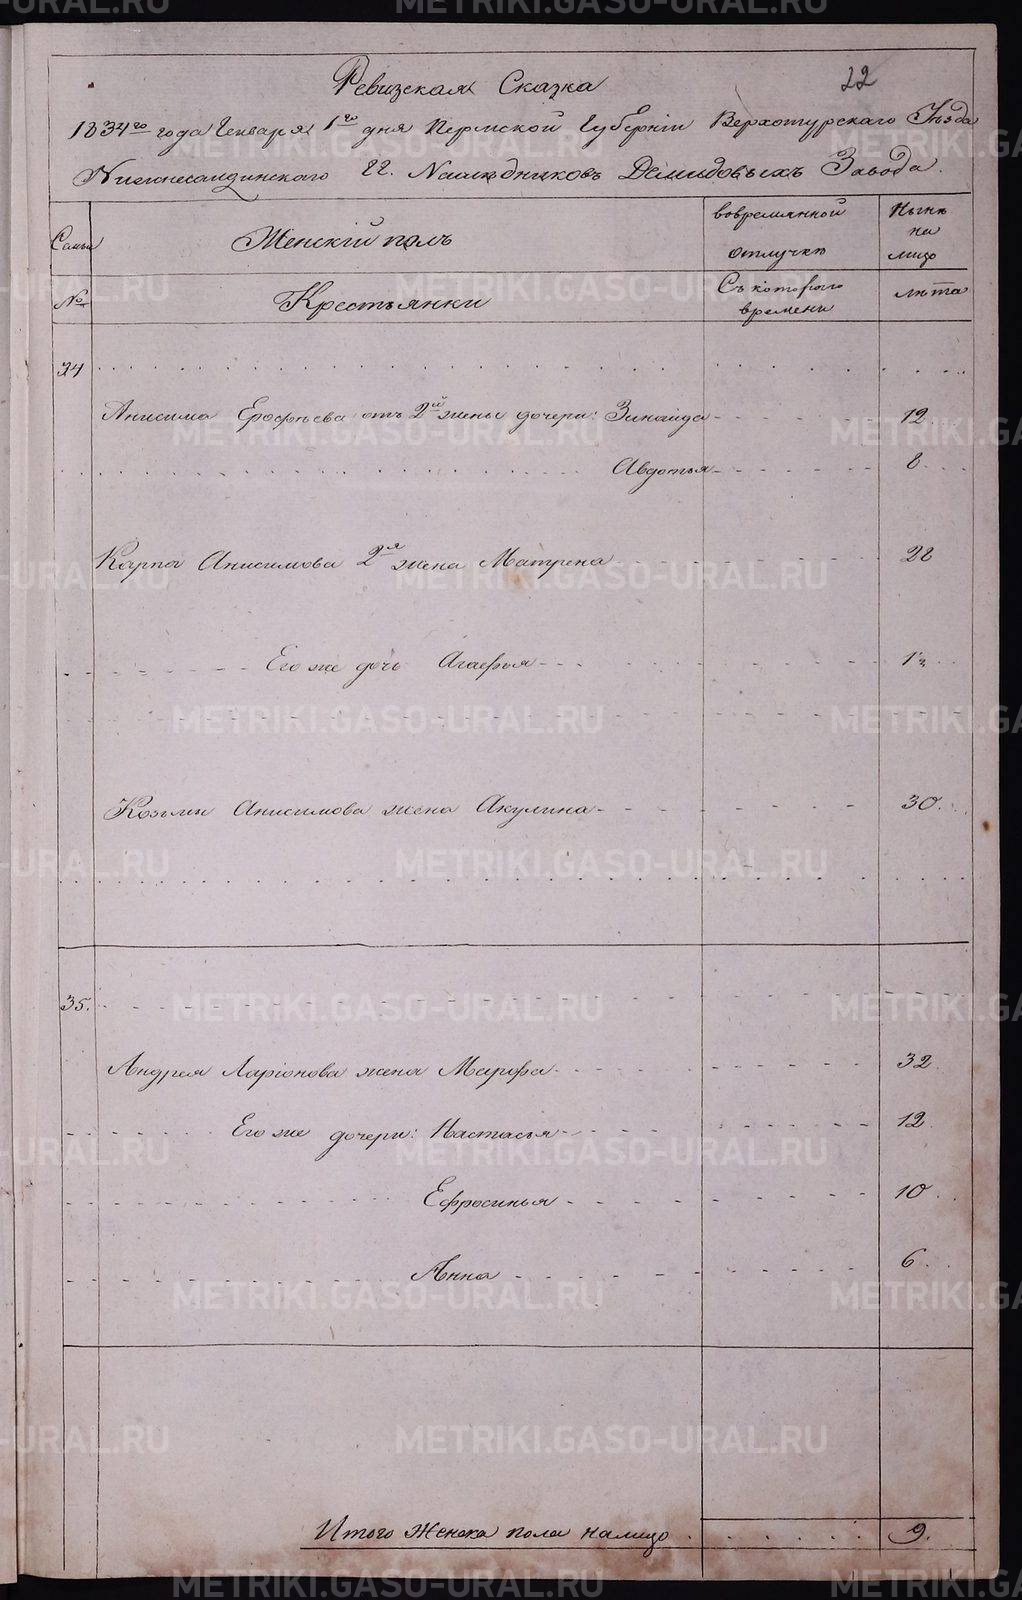 22
Ревизская Сказка
1834го года Генваря 1го дня Пермской Губерніи Верхотурскаго Уѣзда
Нижнесалдинскаго ГГ. Наслѣдниковъ Демидовыхъ Завода.
Семьи
Женскій полъ
вовременной отлучкѣ
Нынѣ на лицо
№
Крестьянки
Съ котораго времени
лѣта
34
Анисима Ерофѣева отъ 2й жены дочери: Зинаида 12
Авдотья 8
Карпа Анисимова 2я жена Матрена 28
Его же дочь Агафья
Козьмы Анисимова жена Акулина 30.
35.
Андрея Ларіонова жена Марфа 32
Его же дочери: Настасья 12
Ефросинья 10
Анна 6
Итого Женска пола налицо 9.
METRIKI.GASO-URAL.RU